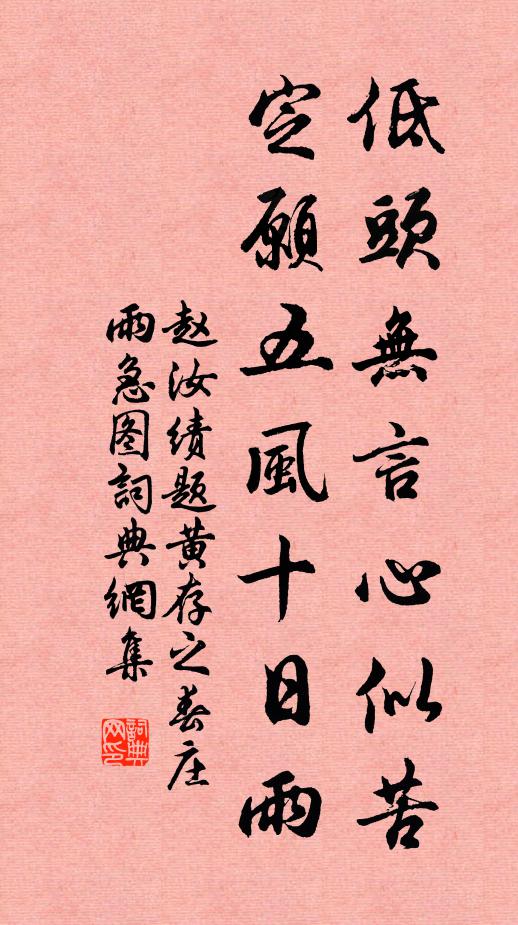 低頭無言心似苦
定願五風十日雨
赵汝绩题黄存之春庄
雨急图詞典網集
詞典網印